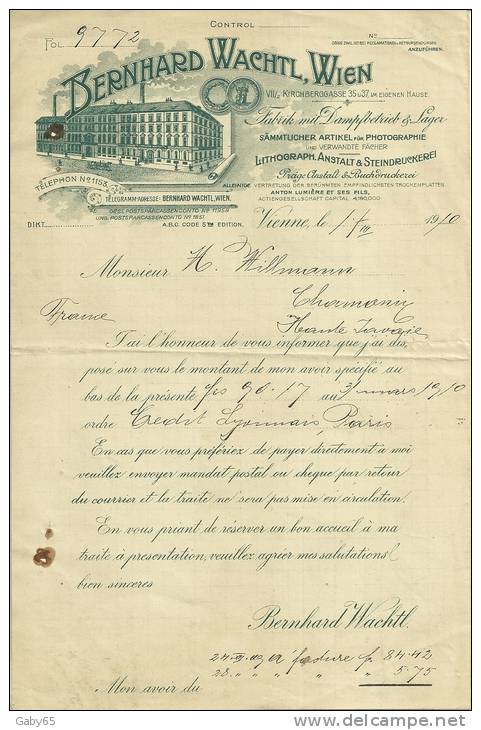 CONTROL
FOL. 9772
No
ANZUFÜHREN.
BERNHARD WACHTL, WIEN
VII/2 KIRCHBERGGASSE 35 u 37, IM EIGENEN HAUSE.
Fabrik mit Dampfbetrieb & Lager
SÄMMTLICHER ARTIKEL FÜR PHOTOGRAPHIE
UND VERWANDTE FÄCHER
LITHOGRAPH. ANSTALT & STEINDRUCKEREI
Präge Anstalt & Buchdruckerei
ALLEINIGE VERTRETUNG DER BERÜHMTEN EMPFINDLICHSTEN TROCKENPLATTEN
ANTON LUMIÈRE ET SES FILS,
ACTIENGESELLSCHAFT CAPITAL 4,160,000
TELEPHON No 1153.
TELEGRAMM-ADRESSE: BERNHARD WACHTL, WIEN.
DIKT.
A.B.C. CODE 5TH EDITION.
Vienne, le 1910
Monsieur H. Willmann
Chamonix
France Haute Savoie
J'ai l'honneur de vous informer que j'ai dis,
posé sur vous le montant de mon avoir spécifié au
bas de la présente frs 90.17 au 31 mars 1910
ordre Credit Lyonnais, Paris
En cas que vous préfériez de payer directement à moi
veuillez envoyer mandat postal ou chèque par retour
du courrier et la traite ne sera pas mise en circulation.
En vous priant de réserver un bon accueil à ma
traite à presentation, veuillez agréer mes salutations
bien sincères
Bernhard Wachtl.
facture fr. 84.42
28. " " " " 5.75
Mon avoir du
Gaby65
delcampe.net